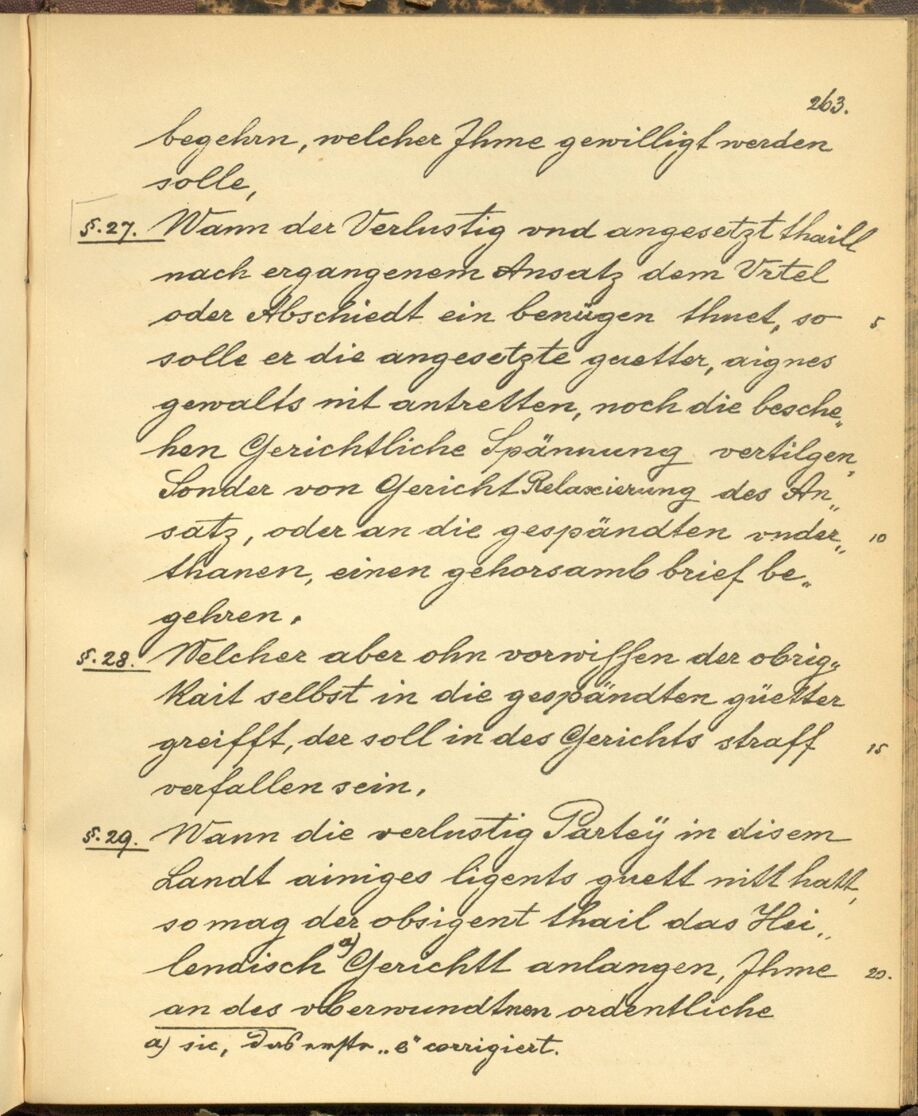 263.
begehrn, welcher Ihme gewilligt werden
solle,
§.27. Wann der Verlustig vnd angesetzt thaill
nach ergangenem Ansatz dem Vrtel
oder Abschiedt ein benügen thuet, so 5
solle er die angesetzte guetter, aignes
gewalts nit antretten, noch die besche„
hen Gerichtliche Spännung vertilgen„
Sonder von Gericht Relaxierung des An„
satz, oder an die gespändten vnder„ 10
thanen, einen gehorsamb brief be„
gehren.
§.28. Welcher aber ohn vorwissen der obrig„
kait selbst in die gespändten güetter
greifft, der soll in des Gerichts straff 15
verfallen sein.
§.29. Wann die verlustig Parteÿ in disem
Landt ainiges ligents guett nitt hatt,
so mag der obsigent thail das Hei„
lendisch a) Gerichtt anlangen, Ihme 20.
an des vberwundtnen ordentliche
a) sic, das erste „e“ corrigiert.